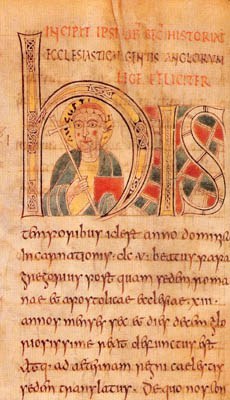 INCIPIT HISTORIAE
ECCLESIASTICAE GENTIS ANGLORUM
FELICITER
HIS
temporibus idest anno domini
Incarnationis · dc · v · beatus papa
gregorius post quam sedem roma
nae & apostolicae ecclesiae · xiii ·
annos menses sex & dies decem glo
riosissime rexit defunctus est
atq· ad aeternam regni caelestis
sedem translatus · De quo nos con